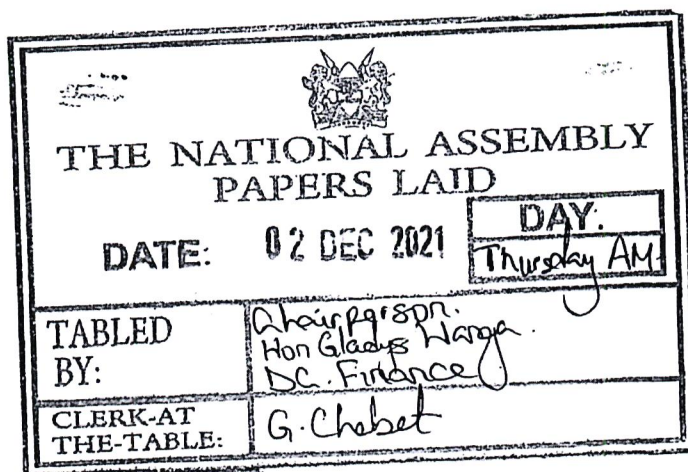 THE NATIONAL ASSEMBLY
PAPERS LAID
DATE: 02 DEC 2021
DAY:
Thursday AM
TABLED BY:
Chairperson.
Hon Gladys Wanga.
DC. Finance
CLERK-AT THE-TABLE:
G. Chebet